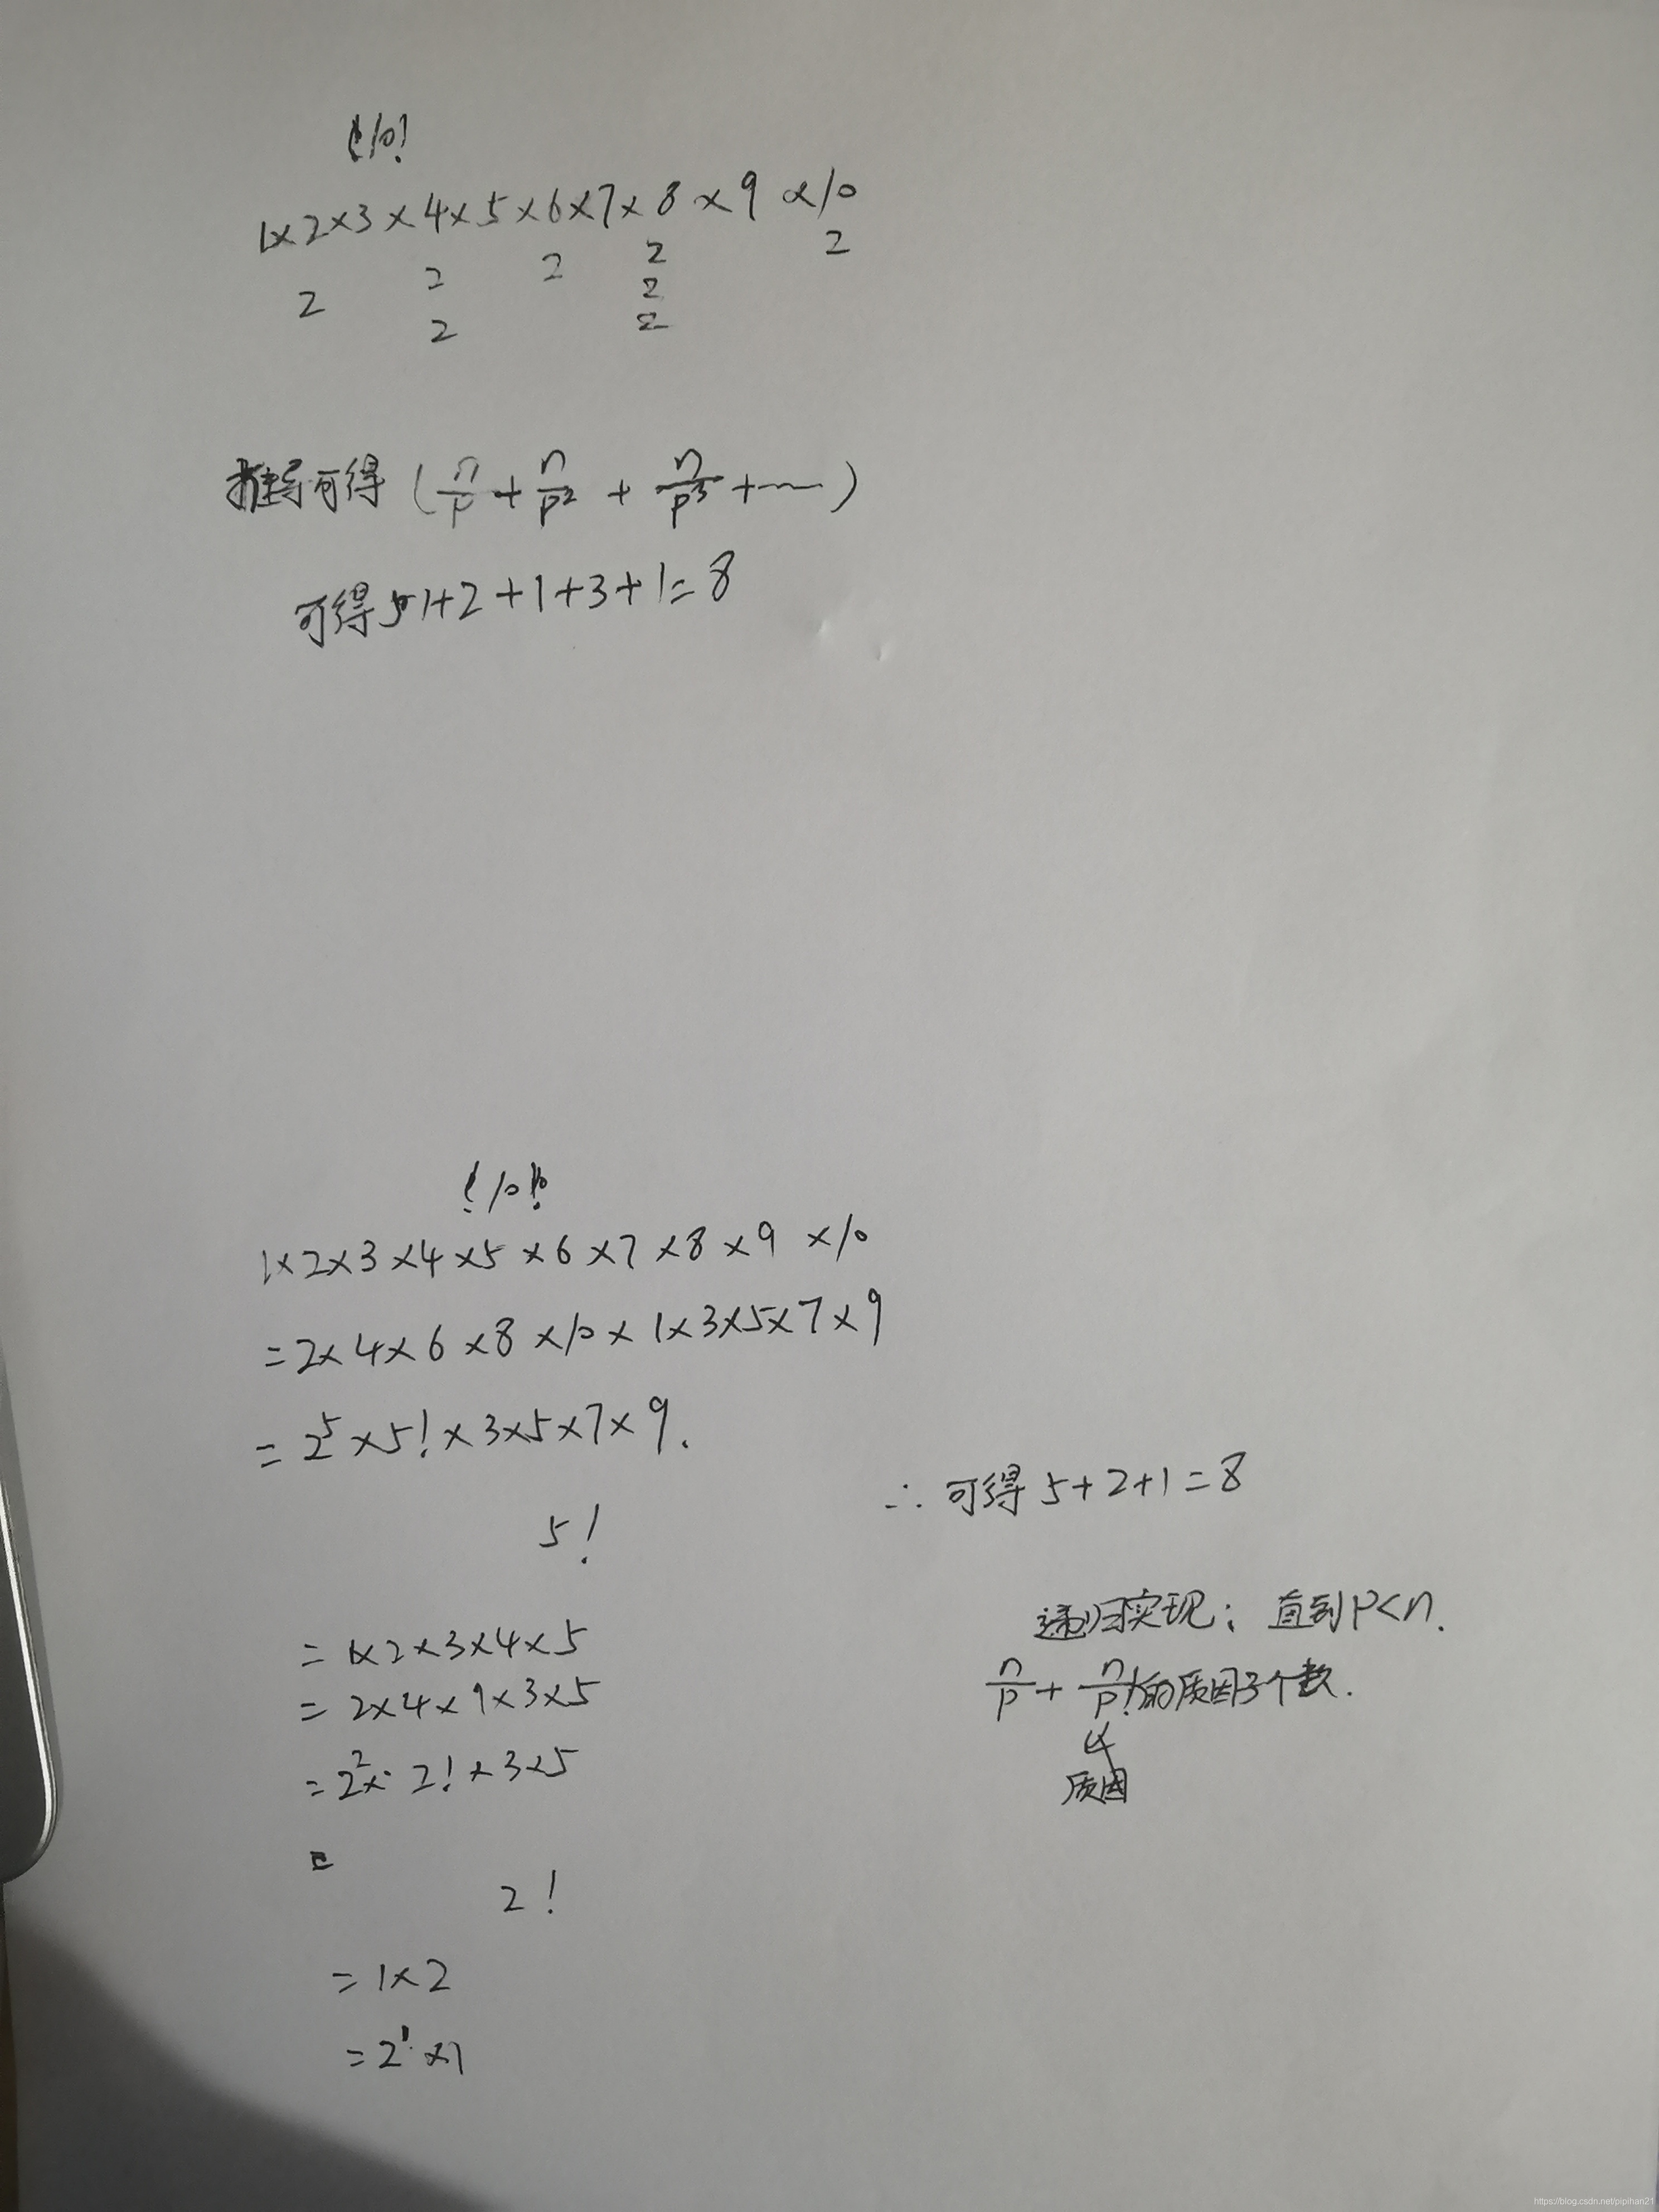 10!
1×2×3×4×5×6×7×8×9×10
2 2 2 2 2
2 2
2
推导可得(n/p+n/p²+n/p³+……)
可得1+2+1+3+1=8
10!
1×2×3×4×5×6×7×8×9×10
=2×4×6×8×10×1×3×5×7×9
=2⁵×5!×3×5×7×9.
5!
=1×2×3×4×5
=2×4×1×3×5
=2²×2!×3×5
=
2!
=1×2
=2¹×1
∴可得5+2+1=8
递归实现:直到P<n.
n/p+n/p!的质因子个数.
质因
https://blog.csdn.net/pipihan21